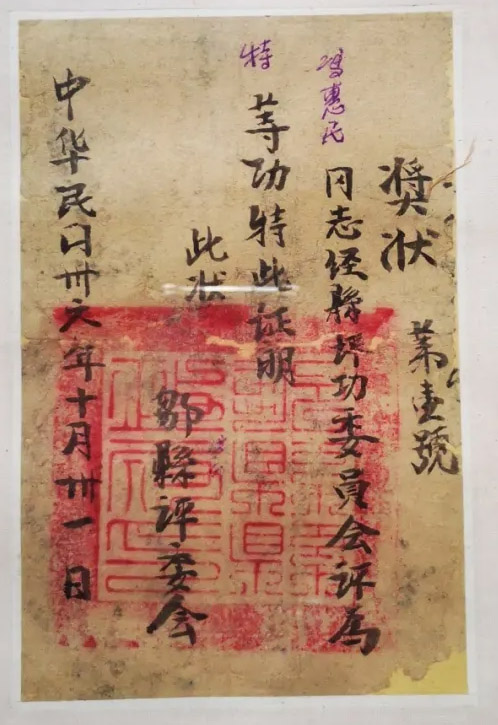 奬状
第壹號
冯惠民同志经縣评功委員会评為
特等功特此证明
此状
鄒縣评委会
中华民国卅六年十月卅一日